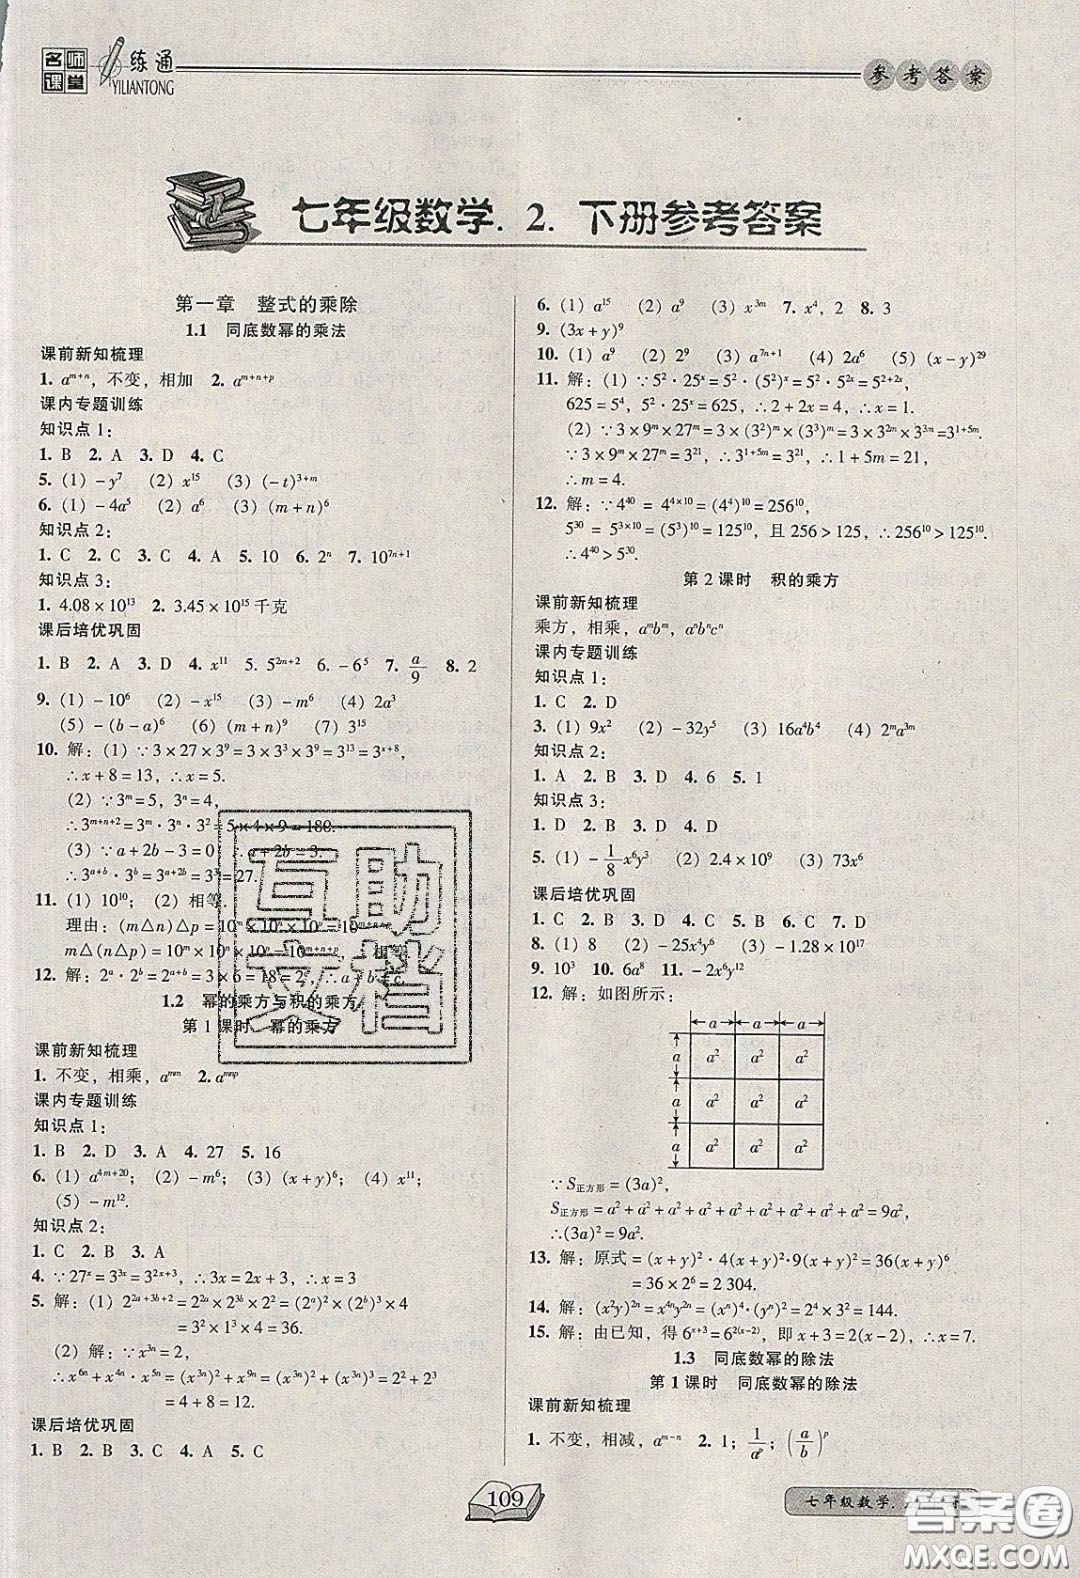 名师课堂
一练通
YILIANTONG
参考答案
七年级数学.2.下册参考答案
第一章 整式的乘除
1.1 同底数幂的乘法
课前新知梳理
1. a^{m+n}，不变，相加 2. a^{m+n+p}
课内专题训练
知识点1：
1. B 2. A 3. D 4. C
5. (1) -y^7 (2) x^{15} (3) (-t)^{3+m}
6. (1) -4a^5 (2) a^6 (3) (m+n)^6
知识点2：
1. C 2. C 3. C 4. A 5. 10 6. 2^n 7. 10^{7n+1}
知识点3：
1. 4.08×10^{13} 2. 3.45×10^{15}千克
课后培优巩固
1. B 2. A 3. D 4. x^{11} 5. 5^{2n+2} 6. -6^5 7. a/9 8. 2
9. (1) -10^6 (2) -x^{15} (3) -m^6 (4) 2a^3
(5) -(b-a)^6 (6) (m+n)^9 (7) 3^{15}
10. 解：(1) ∵3×27×3^9=3×3^3×3^9=3^{13}=3^{x+8}，
∴x+8=13，∴x=5.
(2) ∵3^m=5，3^n=4，
∴3^{m+n+2}=3^m·3^n·3^2=5×4×9=180.
(3) ∵a+2b-3=0 ∴a+2b=3.
∴3^{a+b}·3^b=3^{a+2b}=3^3=27.
11. (1) 10^{10}；(2) 相等.
理由：(m△n)△p=10^m×10^n×10^p=10^{m+n+p}
m△(n△p)=10^m×10^n×10^p=10^{m+n+p}.
12. 解：2^a·2^b=2^{a+b}=3×6=18=2^c，∴a+b=c.
1.2 幂的乘方与积的乘方
第1课时 幂的乘方
课前新知梳理
1. 不变，相乘，a^{mn} 2. a^{mnp}
课内专题训练
知识点1：
1. B 2. D 3. A 4. 27 5. 16
6. (1) a^{4m+20}； (2) -m^6； (3) (x+y)^6； (4) x^{11}；
(5) -m^{12}.
知识点2：
1. C 2. B 3. A
4. ∵27^x=3^{3x}=3^{2x+3}，∴3x=2x+3，∴x=3
5. 解：(1) 2^{2a+3b+2}=2^{2a}×2^{3b}×2^2=(2^a)^2×(2^b)^3×4
=3^2×1^3×4=36.
(2) 解：∵x^{3n}=2，
∴x^{6n}+x^{4n}·x^{5n}=(x^{3n})^2+x^{9n}=(x^{3n})^2+(x^{3n})^3
=4+8=12.
课后培优巩固
1. B 2. B 3. C 4. A 5. C
6. (1) a^{15} (2) a^9 (3) x^{3m} 7. x^4，2 8. 3
9. (3x+y)^9
10. (1) a^9 (2) a (3) a^{7n+1} (4) 2a^6 (5) (x-y)^{29}
11. 解：(1) ∵5^2·25^x=5^2·(5^2)^x=5^2·5^{2x}=5^{2+2x}，
625=5^4，5^2·25^x=625，∴2+2x=4，∴x=1.
(2) ∵3×9^m×27^m=3×(3^2)^m×(3^3)^m=3×3^{2m}×3^{3m}=3^{1+5m}.
∵3×9^m×27^m=3^{21}，∴3^{1+5m}=3^{21}，∴1+5m=21，
∴m=4.
12. 解：∵4^{40}=4^{4×10}=(4^4)^{10}=256^{10}，
5^{30}=5^{3×10}=(5^3)^{10}=125^{10}，且256>125，∴256^{10}>125^{10}.
∴4^{40}>5^{30}.
第2课时 积的乘方
课前新知梳理
乘方，相乘，a^mb^m，a^nb^nc^n
课内专题训练
知识点1：
1. C 2. D
3. (1) 9x^2 (2) -32y^5 (3) 16a^4b^4 (4) 2^ma^{3m}
知识点2：
1. A 2. B 3. D 4. 6 5. 1
知识点3：
1. D 2. D 3. D 4. D
5. (1) -1/8x^6y^3 (2) 2.4×10^9 (3) 73x^6
课后培优巩固
1. C 2. B 3. D 4. D 5. B 6. C 7. D
8. (1) 8 (2) -25x^4y^6 (3) -1.28×10^{17}
9. 10^3 10. 6a^8 11. -2x^6y^{12}
12. 解：如图所示：
a a a
a a^2 a^2 a^2
a a^2 a^2 a^2
a a^2 a^2 a^2
∵S正方形=(3a)^2，
S正方形=a^2+a^2+a^2+a^2+a^2+a^2+a^2+a^2+a^2=9a^2，
∴(3a)^2=9a^2.
13. 解：原式=(x+y)^2·4(x+y)^2·9(x+y)^2=36(x+y)^6
=36×2^6=2 304.
14. 解：(x^2y)^{2n}=x^{4n}y^{2n}=(x^n)^4·(y^n)^2=2^4×3^2=144.
15. 解：由已知，得6^{x+3}=6^{2(x-2)}，即x+3=2(x-2)，∴x=7.
1.3 同底数幂的除法
第1课时 同底数幂的除法
课前新知梳理
1. 不变，相减，a^{m-n} 2. 1；1/a^p；(a/b)^p
109
七年级数学.
互助文档
答案圈
MXQE.COM